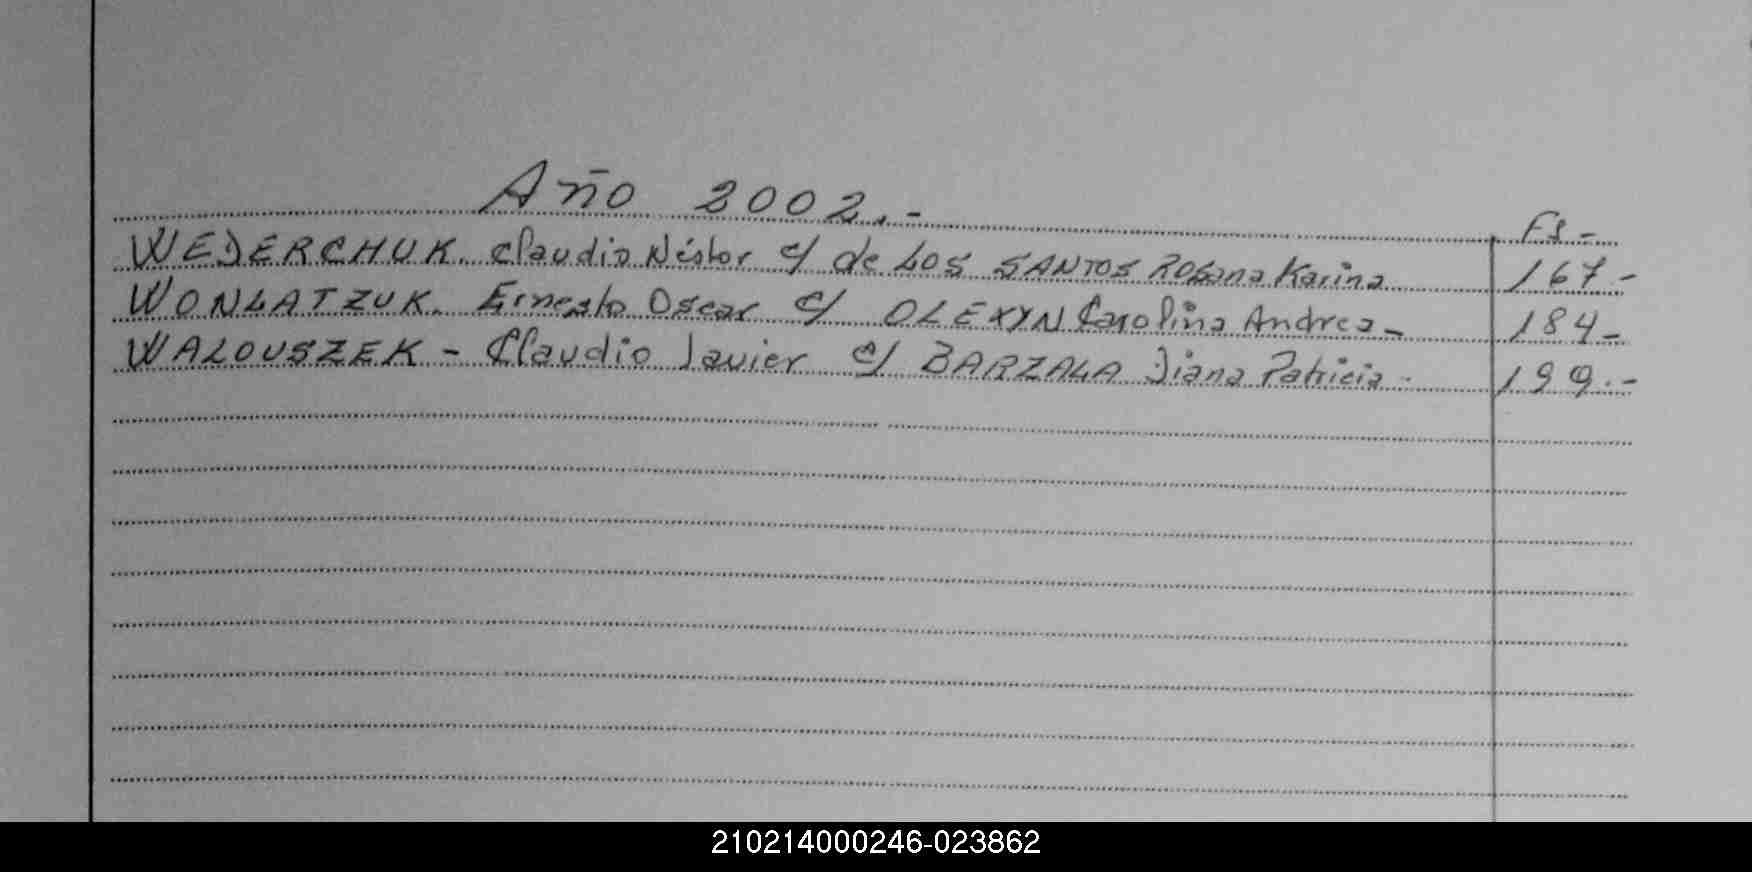 Año 2002.-
Fs-
WEDERCHUK. Claudio Néstor c/ de LOS SANTOS Rosana Karina 167.-
WONLATZUK. Ernesto Oscar c/ OLEXYN Carolina Andrea- 184-
WALOUSZEK - Claudio Javier c/ BARZALA Diana Patricia - 199.-
210214000246-023862